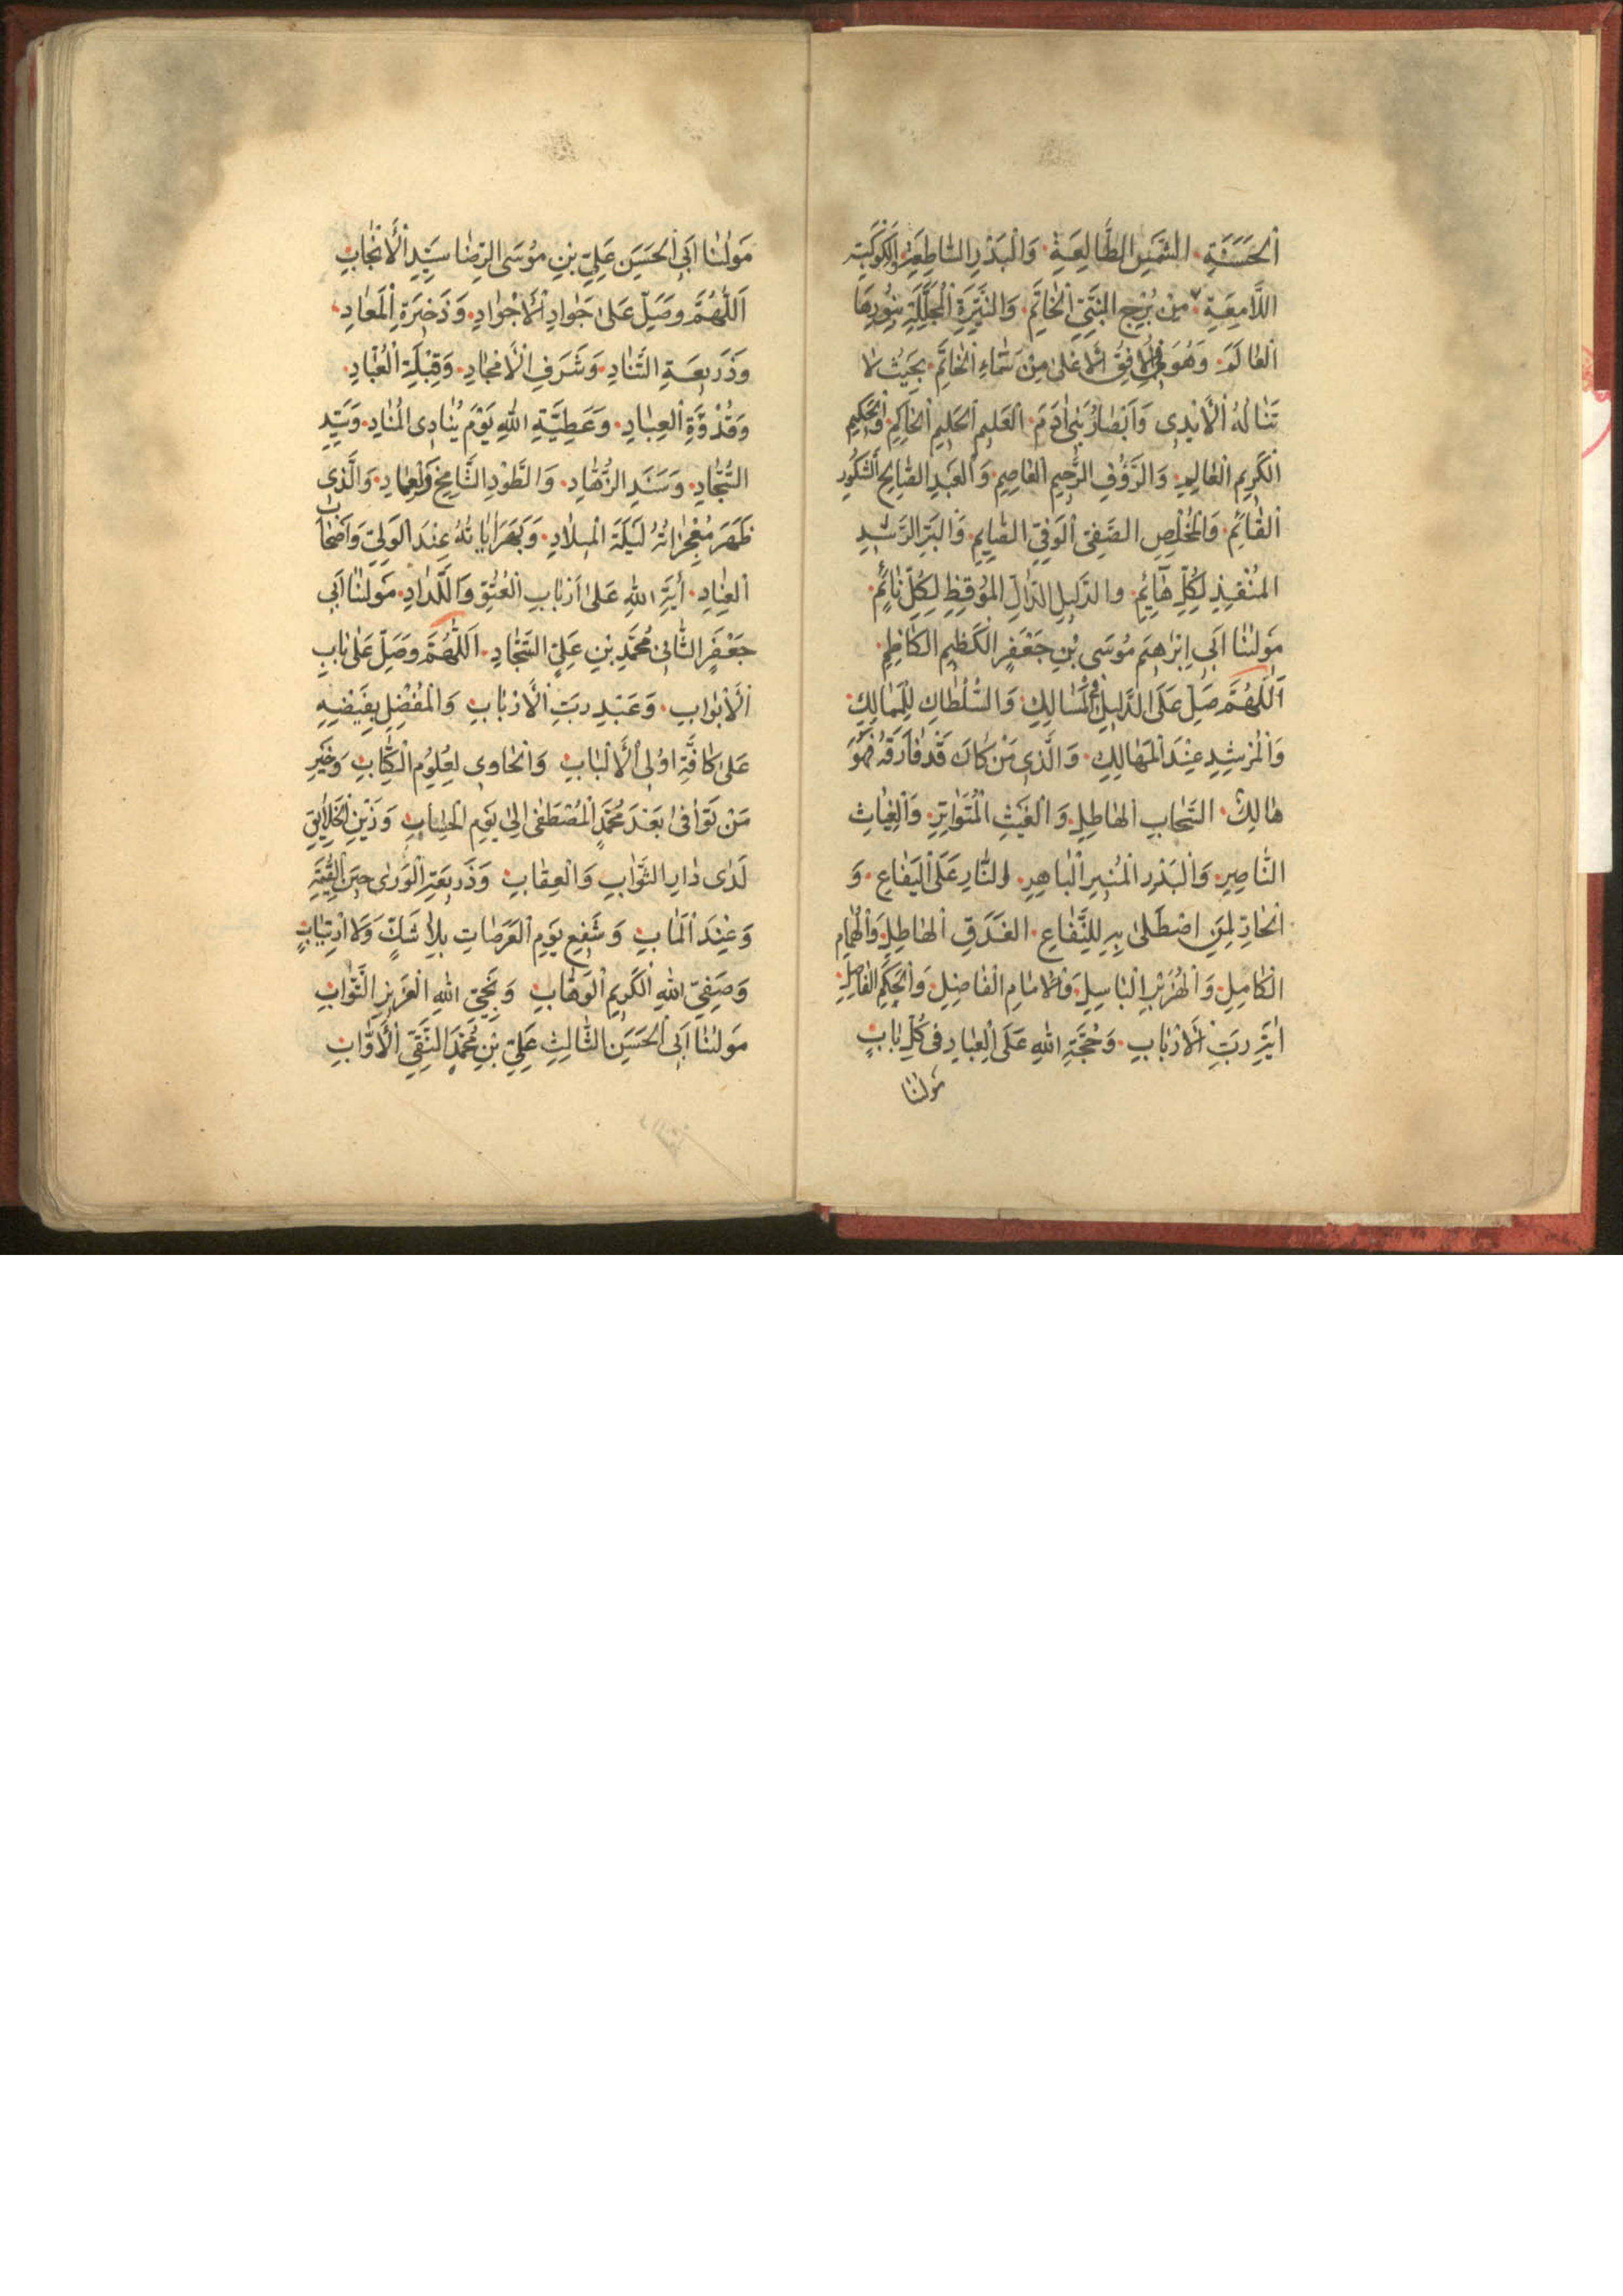 اَلْحَسَنَةِ الشَّمْسِ الطَّالِعَةِ وَالْبَدْرِ السَّاطِعَةِ وَالْكَوْكَبَةِ
اللَّامِعَةِ مِنْ بُرْجِ النَّبِيِّ الْخَاتَمِ وَالنَّيِّرَةِ الْمُجَلِّلَةِ بِنُورِهَا
الْعَالَمَ وَهُوَ فِي الْاُفُقِ الْاَعْلىٰ مِنْ سَمَاءِ الْخَاتَمِ بِحَيْثُ لَا
تَنَالُهُ الْاَيْدِى وَاَبْصَارُ بَنِى اٰدَمَ الْعَلِيمِ الْحَلِيمِ الْحَاكِمِ وَالْحَكِيمِ
الْكَرِيمِ الْعَالِمِ وَالرَّؤُفِ الرَّحِيمِ الْعَاصِمِ وَالْعَبْدِ الصَّالِحِ الشَّكُورِ
الْقَائِمِ وَالْمُخْلِصِ الصَّفِىِّ الْوَفِيِّ الصَّايِمِ وَالْبَرِّ الرَّشِيدِ
الْمُنْقِذِ لِكُلِّ هَآئِمٍ وَالدَّلِيلِ الدَّالِّ الْمُوقِظِ لِكُلِّ نَائِمٍ
مَولٰنَا اَبِى اِبْرٰهِيمَ مُوسَى بْنِ جَعْفَرٍ الْكَظِيمِ الْكَاظِمِ
اَللّٰهُمَّ صَلِّ عَلَى الدَّلِيلِ فِى الْمَسَالِكِ وَالسُّلْطَانِ لِلْمَمَالِكِ
وَالْمُرْشِدِ عِنْدَ الْمَهَالِكِ وَالَّذِى مَنْ كَانَ قَدْ فَارَقَهُ فَهُوَ
هَالِكٌ السَّحَابِ الْهَاطِلِ وَالْغَيْثِ الْمُتَوَاتِرِ وَالْغِيَاثِ
النَّاصِرِ وَالْبَدْرِ الْمُنِيرِ الْبَاهِرِ وَالنَّارِ عَلَى الْيَفَاعِ وَ
الْحَارِّ لِمَنِ اصْطَلىٰ بِهِ لِلنِّفَاعِ الْغَدَقِ الْهَاطِلِ وَالْهُمَامِ
الْكَامِلِ وَالْهُزَبْرِ الْبَاسِلِ وَالْاِمَامِ الْفَاضِلِ وَالْحَكَمِ الْفَاصِلِ
اٰيَةِ رَبِّ الْاَرْبَابِ وَحُجَّةِ اللّٰهِ عَلَى الْعِبَادِ فِى كُلِّ بَابٍ
مَولٰنَا
مَولٰنَا اَبِى الْحَسَنِ عَلِيِّ بْنِ مُوسَى الرِّضَا سَيِّدِ الْاَنْجَابِ
اَللّٰهُمَّ وَصَلِّ عَلىٰ جَوَادِ الْاَجْوَادِ وَذَخِيرَةِ الْمَعَادِ
وَذَرِيعَةِ التَّنَادِ وَشَرَفِ الْاَمْجَادِ وَقِبْلَةِ الْعُبَّادِ
وَقُدْوَةِ الْعِبَادِ وَعَطِيَّةِ اللّٰهِ يَوْمَ يُنَادِى الْمُنَادِ وَسَيِّدِ
السُّجَّادِ وَسَنَدِ الزُّهَّادِ وَالطَّوْدِ الشَّامِخِ وَالْعِمَادِ وَالَّذِى
ظَهَرَ مُعْجِزَاتُهُ لَيْلَةَ الْمِيلَادِ وَبَهَرَ اٰيَاتُهُ عِنْدَ الْوَلِيِّ وَاَصْحَابِ
الْعِنَادِ اٰيَةِ اللّٰهِ عَلىٰ اَرْبَابِ الْعُتُوِّ وَاللِّدَادِ مَولٰنَا اَبِى
جَعْفَرٍ الثَّانِى مُحَمَّدِ بْنِ عَلِيٍّ السَّجَّادِ اَللّٰهُمَّ وَصَلِّ عَلىٰ بَابِ
الْاَبْوَابِ وَعَبْدِ رَبِّ الْاَرْبَابِ وَالْمُفْضِلِ بِفَيْضِهِ
عَلىٰ كَافَّةِ اوُلِى الْاَلْبَابِ وَالْحَاوِى لِعُلُومِ الْكِتَابِ وَخَيْرِ
مَنْ تَوَافىٰ بَعْدَ مُحَمَّدٍ الْمُصْطَفٰى اِلىٰ يَوْمِ الْحِسَابِ وَزَيْنِ الْخَلَايِقِ
لَدٰى دَارِ الثَّوَابِ وَالْعِقَابِ وَذَرِيعَةِ الْوَرٰى حِينَ الْقِيٰمَةِ
وَعِنْدَ الْمَاٰبِ وَشَفِيعِ يَوْمِ الْعَرَصَاتِ بِلَا شَكٍّ وَلَا ارْتِيَابٍ
وَصَفِيِّ اللّٰهِ الْكَرِيمِ الْوَهَّابِ وَنَجِيِّ اللّٰهِ الْعَزِيزِ التَّوَّابِ
مَولٰنَا اَبِى الْحَسَنِ الثَّالِثِ عَلِيِّ بْنِ مُحَمَّدٍ النَّقِيِّ الْاَوَّابِ